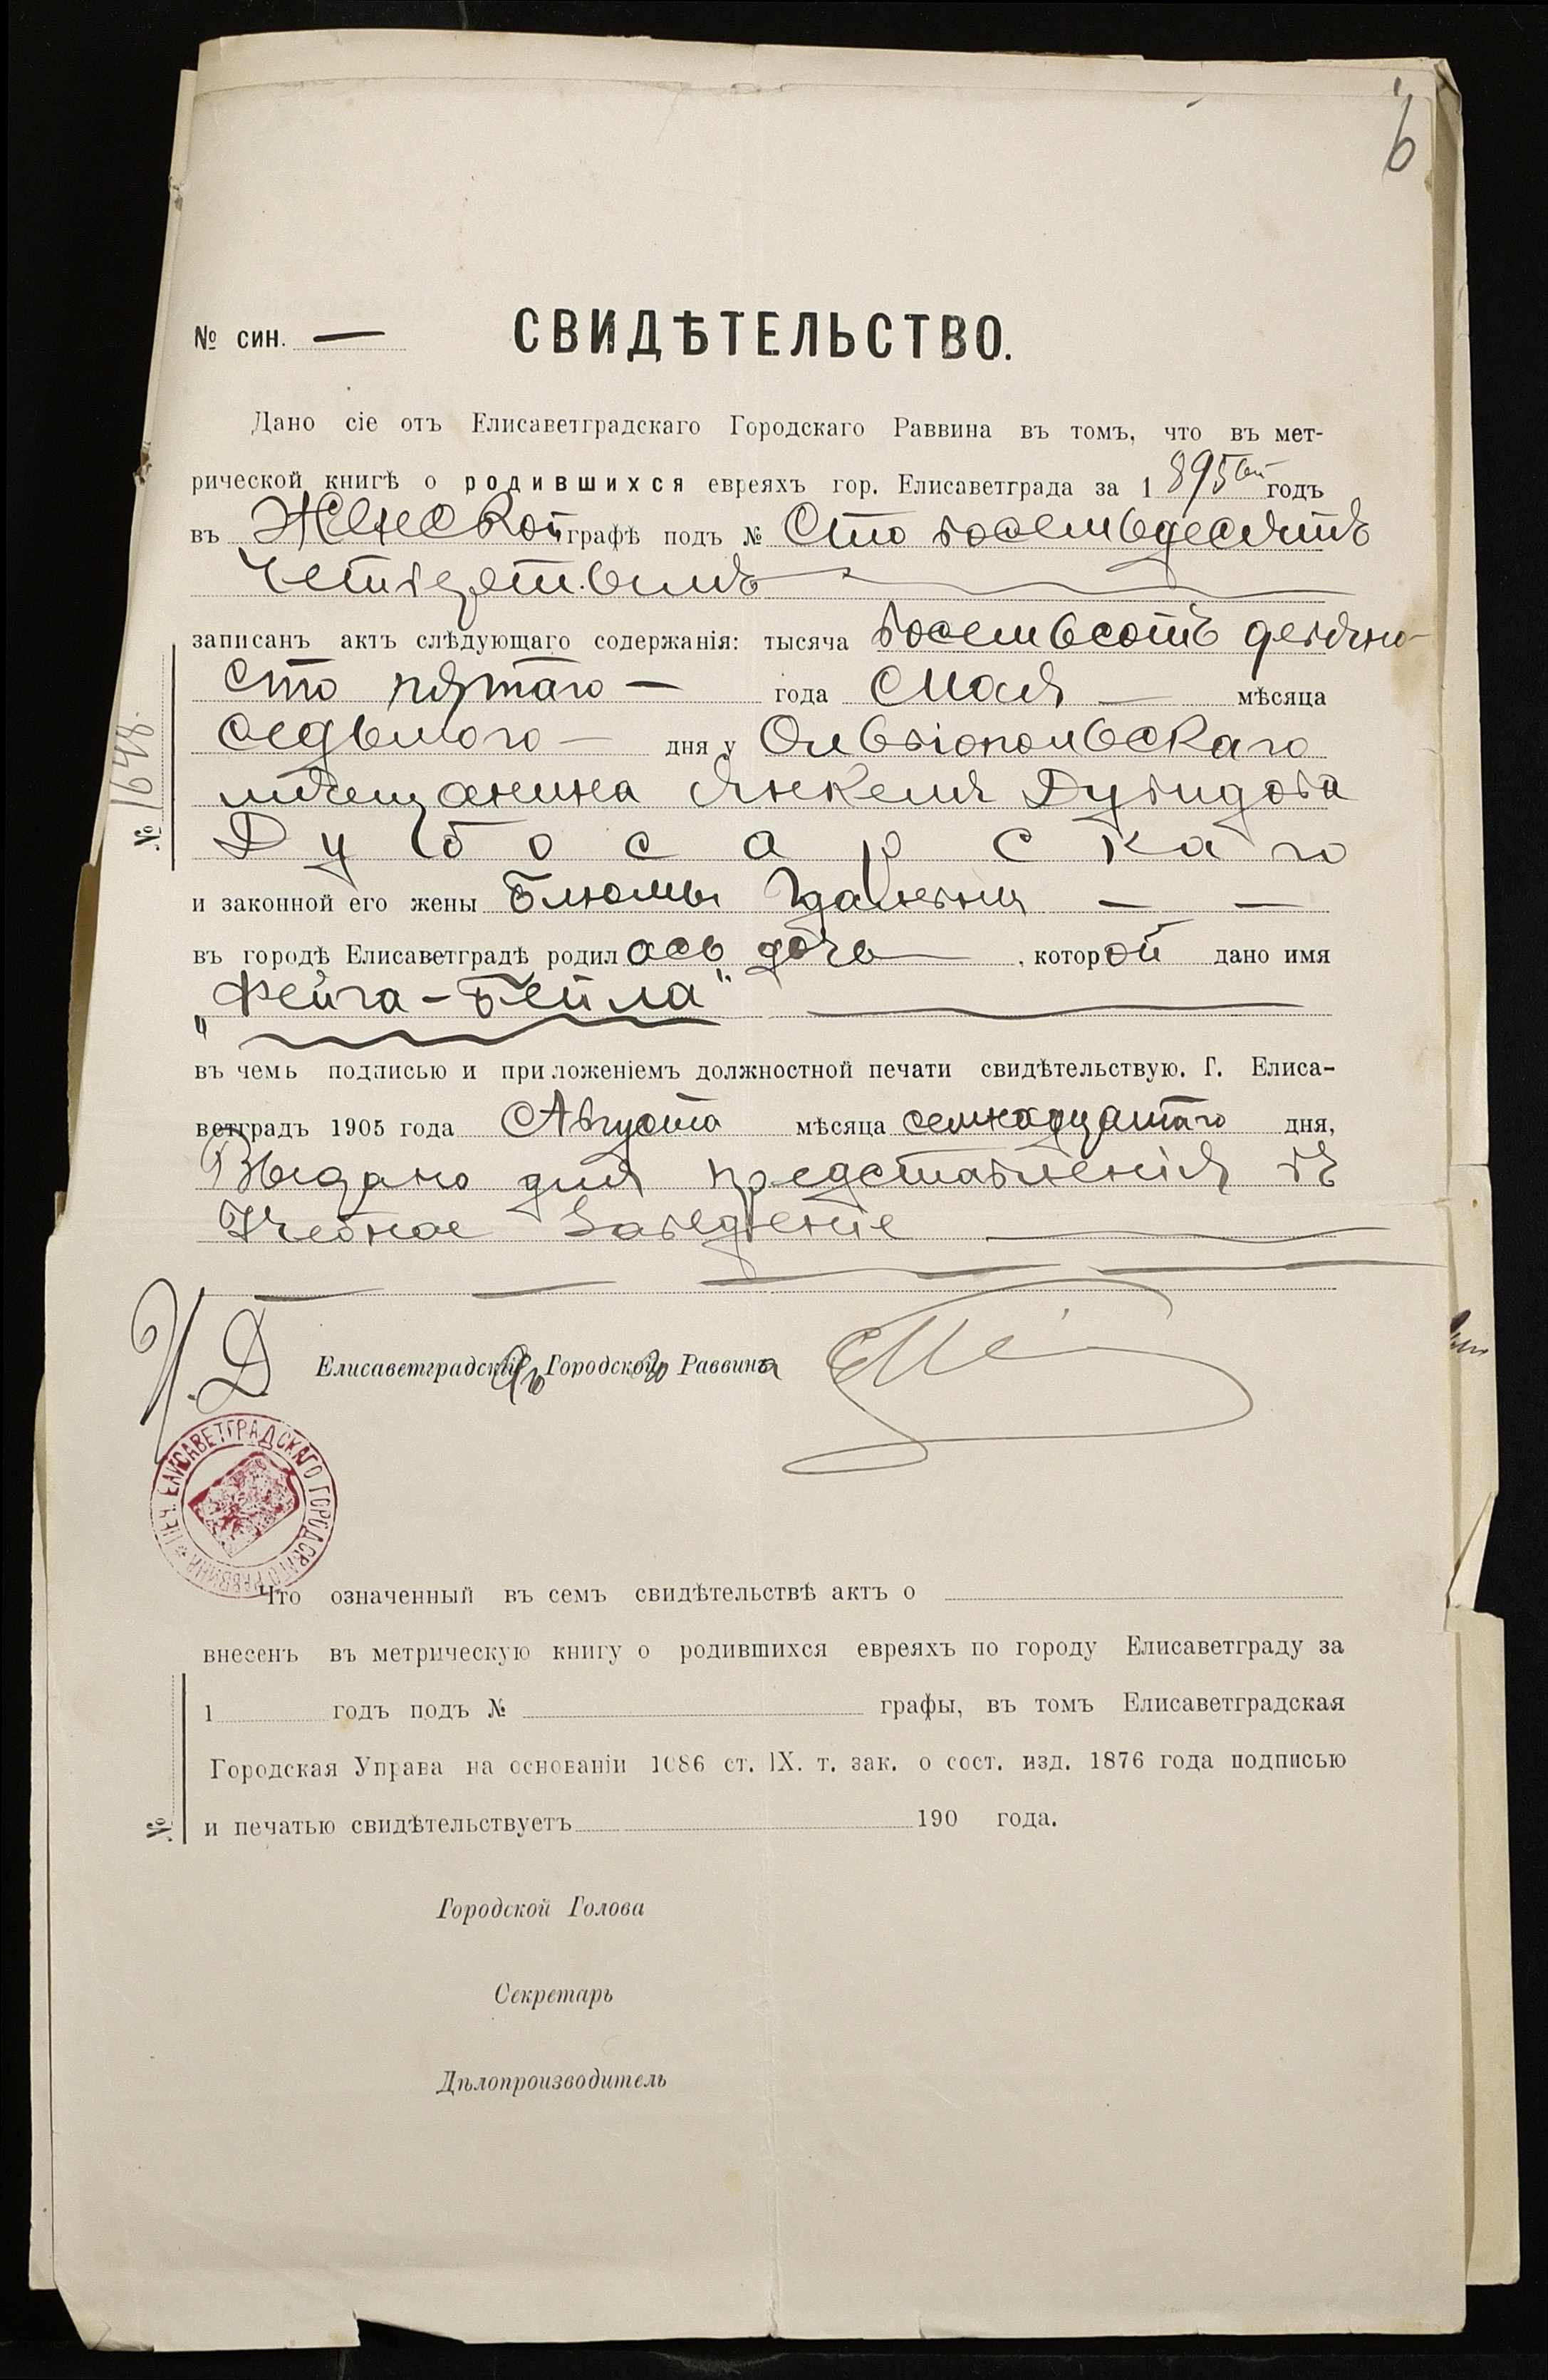 6
№ син. —
СВИДѢТЕЛЬСТВО.
Дано сіе отъ Елисаветградскаго Городскаго Раввина въ томъ, что въ мет-
рической книгѣ о родившихся евреяхъ гор. Елисаветграда за 1895ый годъ
въ Женской графѣ подъ № Сто восемьдесятъ
Четвертымъ
записанъ актъ слѣдующаго содержанія: тысяча восемьсотъ девяно-
сто пятаго — года Мая — мѣсяца
Седьмого — дня у Ольвіопольскаго
мѣщанина Янкеля Дувидова
Дубосарскаго
и законной его жены Блюмы — —
въ городѣ Елисаветградѣ родилась дочь, которой дано имя
„Фейга-Бейла"
въ чемъ подписью и приложеніемъ должностной печати свидѣтельствую. Г. Елиса-
ветградъ 1905 года Августа мѣсяца семнадцатаго дня,
Выдано для представленія въ
Учебное Заведеніе
№ 1648
И. Д. Елисаветградскаго Городского Раввина
ПЕЧ. ЕЛИСАВЕТГРАДСКАГО ГОРОДСКАГО РАВВИНА
Что означенный въ семъ свидѣтельствѣ актъ о
внесенъ въ метрическую книгу о родившихся евреяхъ по городу Елисаветграду за
1 годъ подъ № графы, въ томъ Елисаветградская
Городская Управа на основаніи 1086 ст. IX. т. зак. о сост. изд. 1876 года подписью
и печатью свидѣтельствуетъ 190 года.
№
Городской Голова
Секретарь
Дѣлопроизводитель